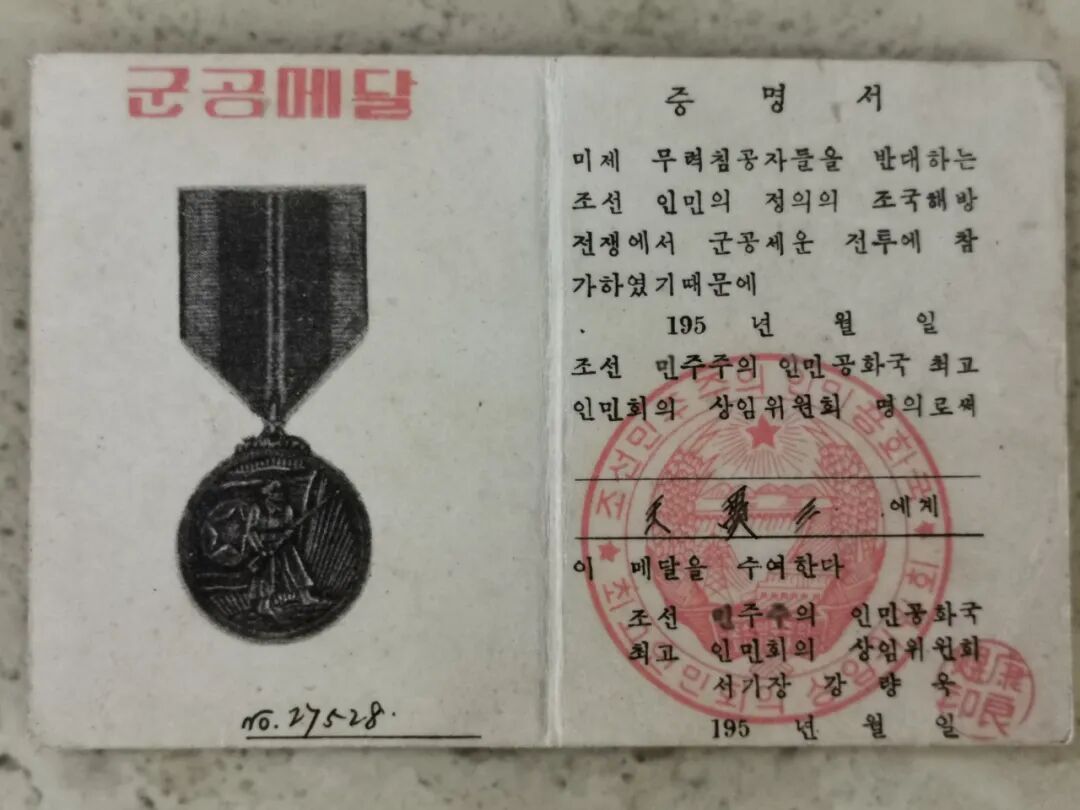 군공메달
No. 27528.
증 명 서
미제 무력침공자들을 반대하는
조선 인민의 정의의 조국해방
전쟁에서 군공세운 전투에 참
가하였기때문에
195 년 월 일
조선 민주주의 인민공화국 최고
인민회의 상임위원회 명의로써
에게
이 메달을 수여한다
조선 민주주의 인민공화국
최고 인민회의 상임위원회
서기장 강 량 욱
195 년 월 일
조선민주주의인민공화국